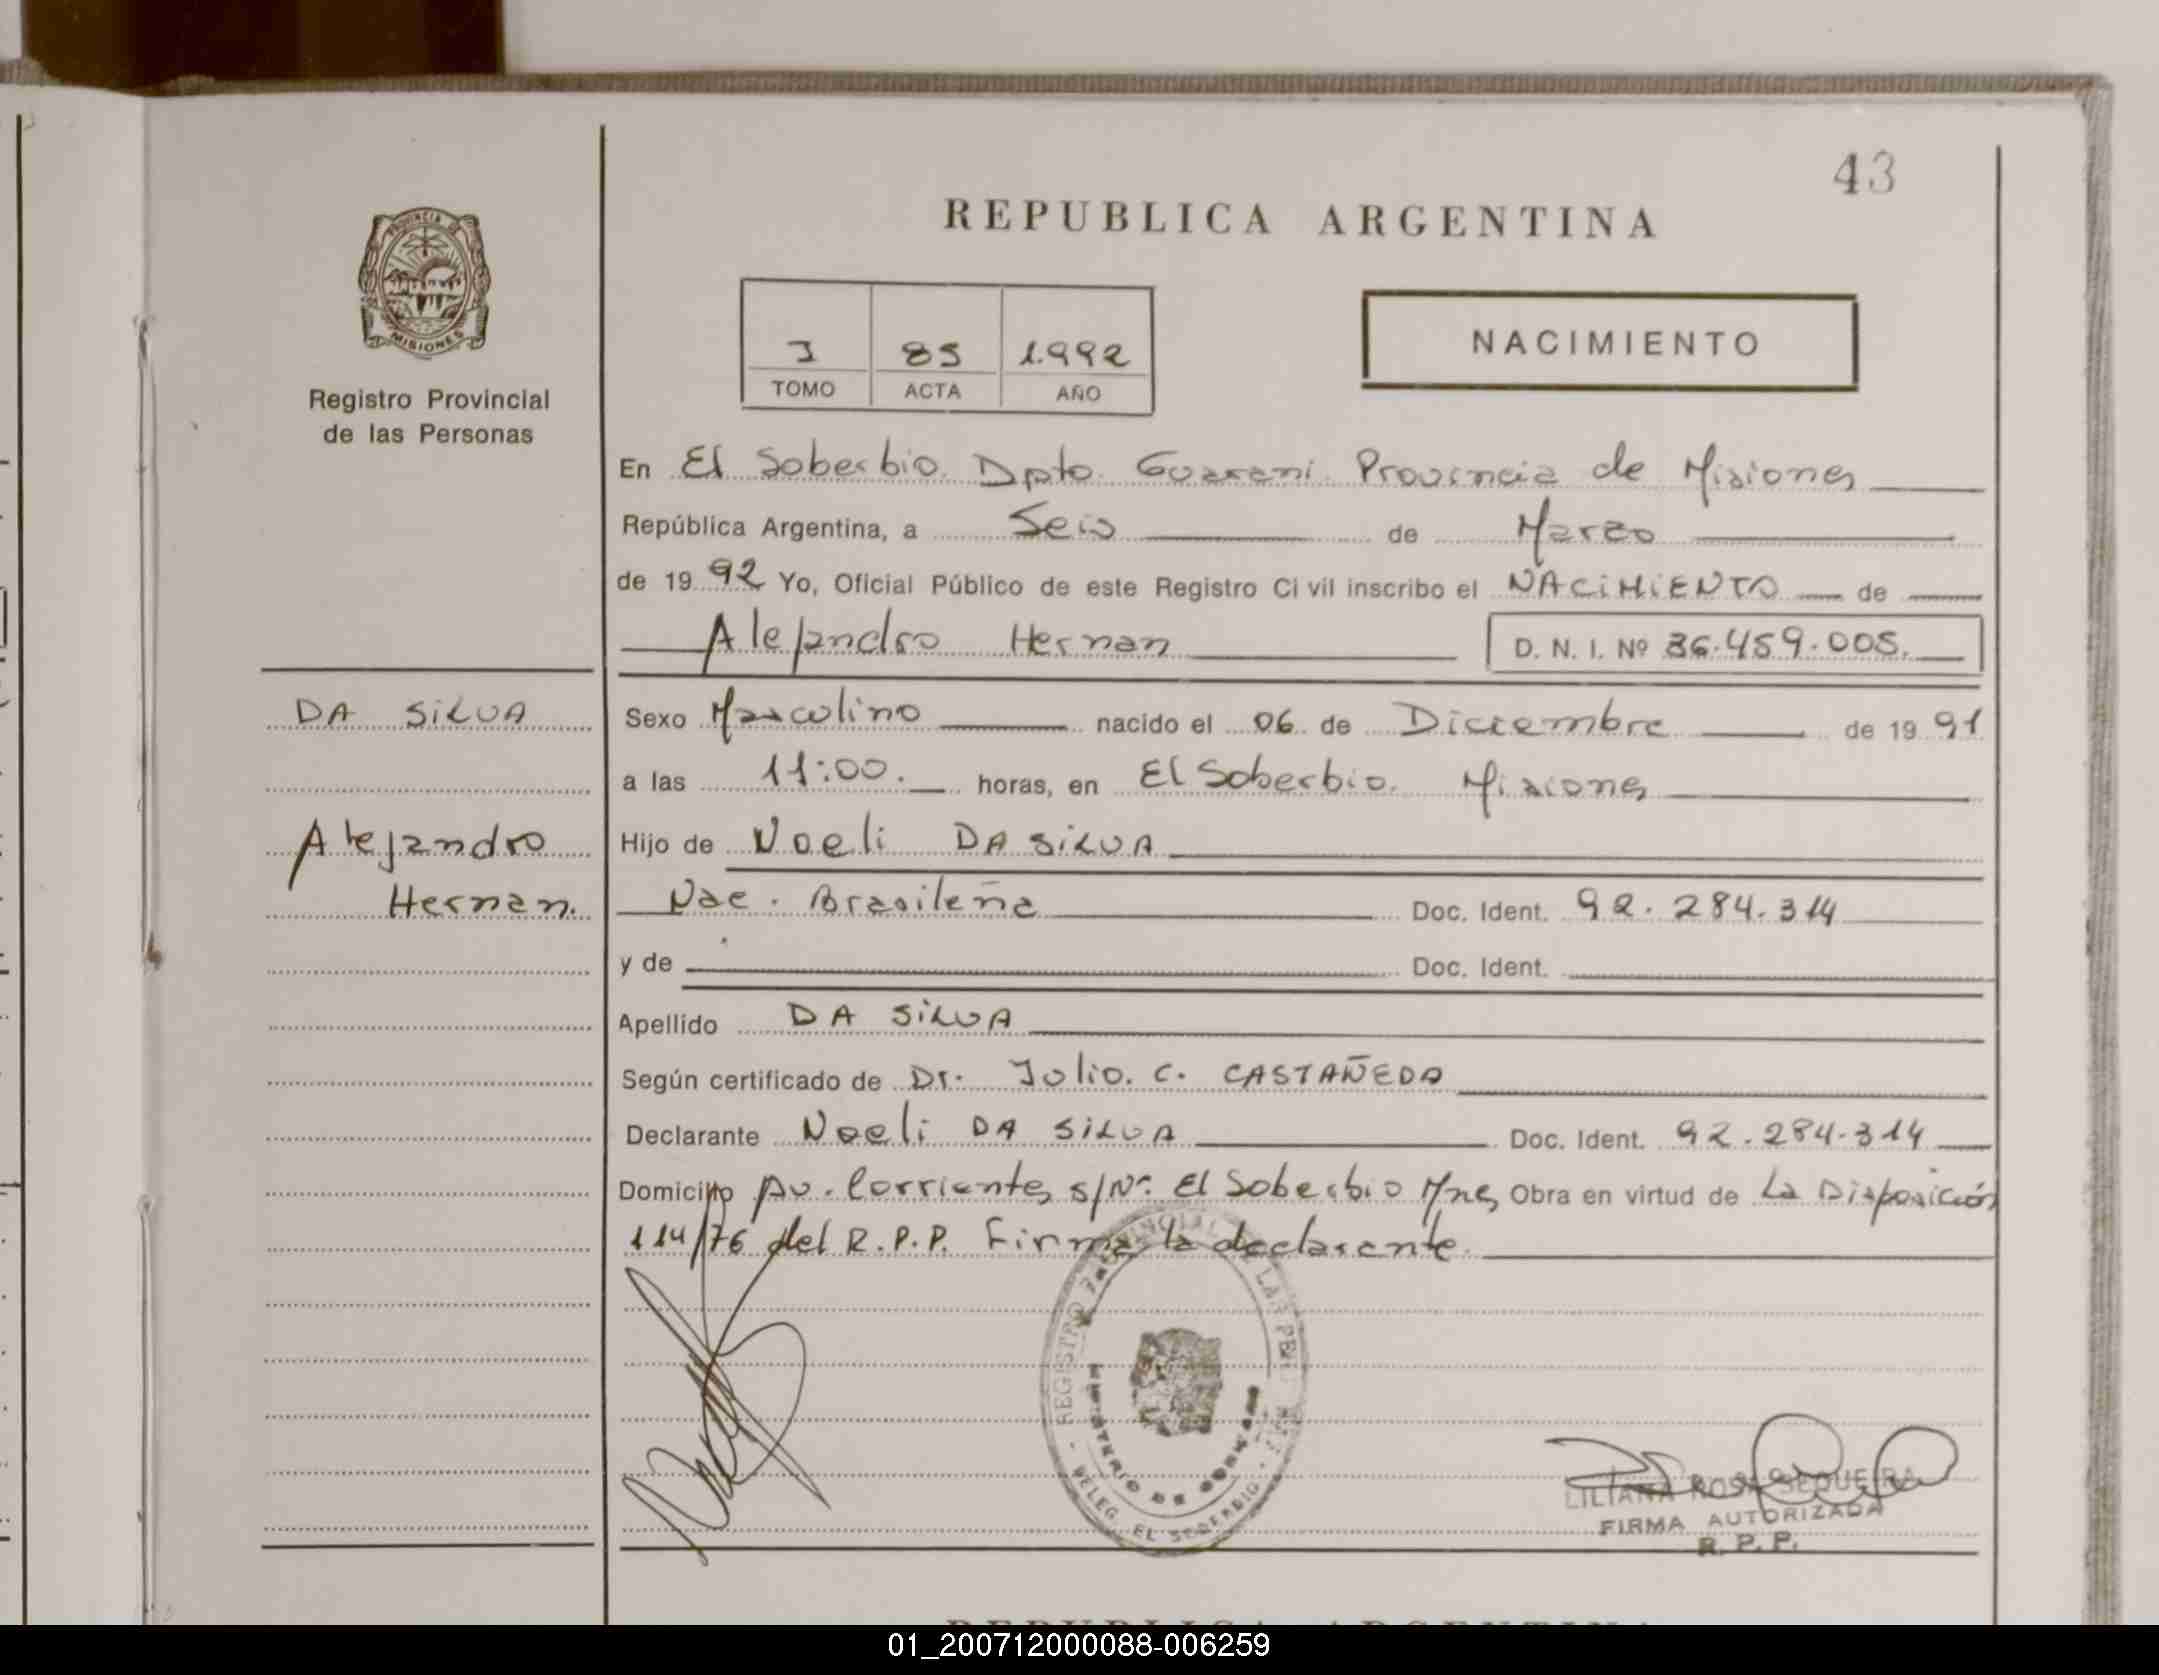 43
REPUBLICA ARGENTINA
PROVINCIA DE
MISIONES
Registro Provincial
de las Personas
I 85 1.992
TOMO ACTA AÑO
NACIMIENTO
En El Soberbio. Dpto. Guarani. Provincia de Misiones
República Argentina, a Seis de Marzo
de 19 92 Yo, Oficial Público de este Registro Civil inscribo el NACIMIENTO de
Alejandro Hernan D. N. I. Nº 36.459.005.
DA SILVA
Alejandro
Hernan.
Sexo Masculino nacido el 06 de Diciembre de 19 91
a las 11:00. horas, en El Soberbio. Misiones
Hijo de Noeli DA SILVA
Nac. Brasileña Doc. Ident. 92.284.314
y de Doc. Ident.
Apellido DA SILVA
Según certificado de Dr. Julio. C. CASTAÑEDA
Declarante Noeli DA SILVA Doc. Ident. 92.284.314
Domicilio Av. Corrientes s/Nº. El Soberbio Mnes Obra en virtud de La Disposición
114/76 del R.P.P. Firma la declarante.
REGISTRO PROVINCIAL DE LAS PER
MINISTERIO DE GOBIERNO
DELEG. EL SOBERBIO
LILIANA ROSA SEQUEIRA
FIRMA AUTORIZADA
R. P. P.
REPUBLICA ARGENTINA
01_200712000088-006259